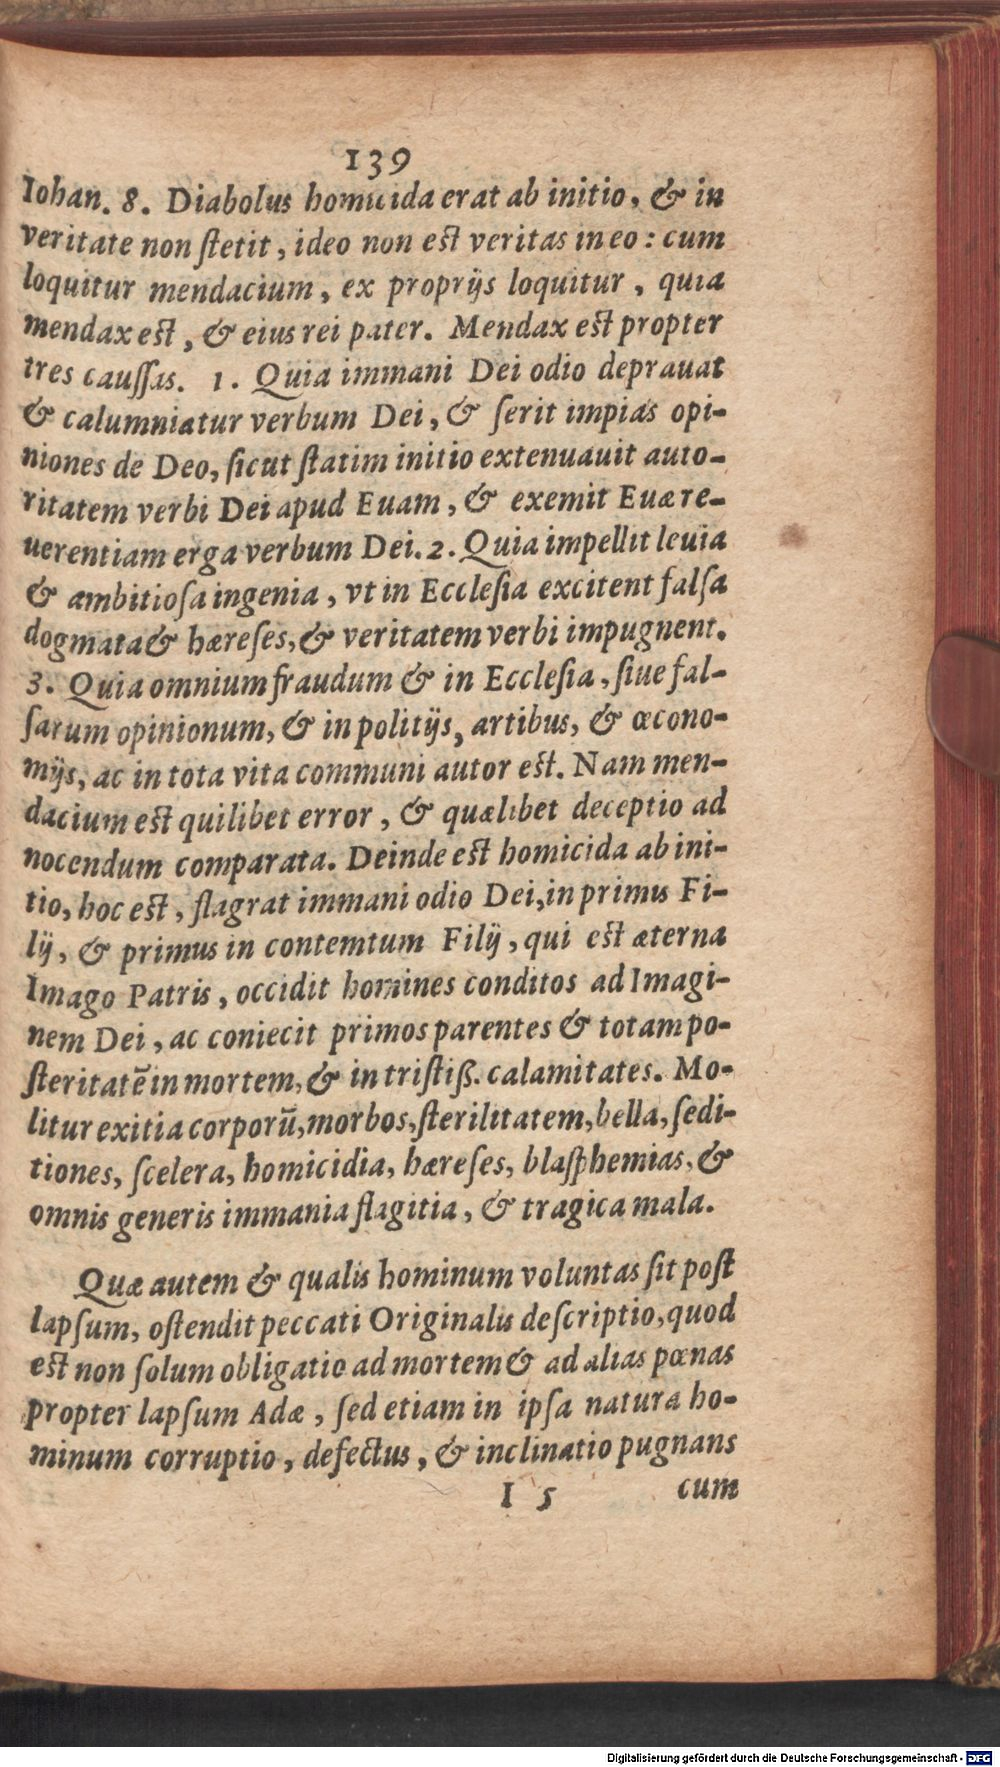 139
Iohan. 8. Diabolus homicida erat ab initio, & in
veritate non ſtetit, ideo non eſt veritas in eo: cum
loquitur mendacium, ex proprijs loquitur, quia
mendax eſt, & eius rei pater. Mendax eſt propter
tres cauſſas. 1. Quia immani Dei odio deprauat
& calumniatur verbum Dei, & ſerit impias opi-
niones de Deo, ſicut ſtatim initio extenuauit auto-
ritatem verbi Dei apud Euam, & exemit Euæ re-
uerentiam erga verbum Dei. 2. Quia impellit leuia
& ambitioſa ingenia, vt in Eccleſia excitent falſa
dogmata & hæreſes, & veritatem verbi impugnent.
3. Quia omnium fraudum & in Eccleſia, ſiue fal-
ſarum opinionum, & in politijs, artibus, & œcono-
mijs, ac in tota vita communi autor eſt. Nam men-
dacium eſt quilibet error, & quælibet deceptio ad
nocendum comparata. Deinde eſt homicida ab ini-
tio, hoc eſt, flagrat immani odio Dei, in primis Fi-
lij, & primus in contemtum Filij, qui eſt æterna
Imago Patris, occidit homines conditos ad Imagi-
nem Dei, ac coniecit primos parentes & totam po-
ſteritatē in mortem, & in triſtiß. calamitates. Mo-
litur exitia corporū, morbos, ſterilitatem, bella, ſedi-
tiones, ſcelera, homicidia, hæreſes, blaſphemias, &
omnis generis immania flagitia, & tragica mala.
Quæ autem & qualis hominum voluntas ſit poſt
lapſum, oſtendit peccati Originalis deſcriptio, quod
eſt non ſolum obligatio ad mortem & ad alias pœnas
propter lapſum Adæ, ſed etiam in ipſa natura ho-
minum corruptio, defectus, & inclinatio pugnans
I 5 cum
Digitalisierung gefördert durch die Deutsche Forschungsgemeinschaft - DFG